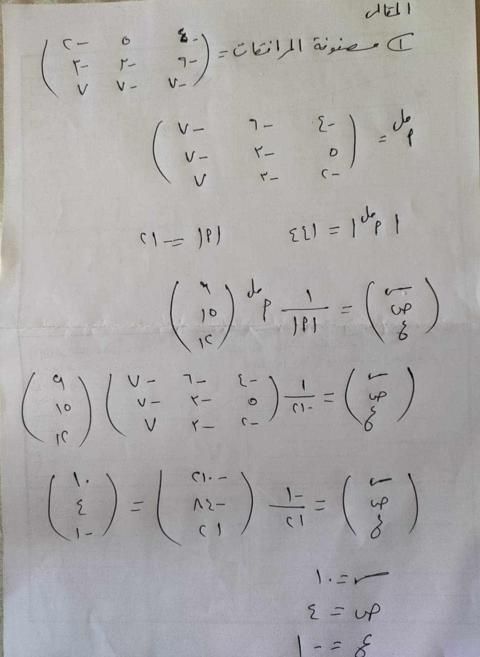 المقالى
١) مصفوفة المرافقات = ( -٤ ٥ -٢
-٦ -٣ -٣
-٧ -٧ ٧ )
م‍ل
أ = ( -٤ -٦ -٧
٥ -٣ -٧
-٢ -٣ ٧ )
|أ مل| = ٤٤١ |أ| = -٢١
( س ص ع ) = ١/|أ| أ مل ( ٩ ١٥ ١٢ )
( س ص ع ) = ١/-٢١ ( -٤ -٦ -٧
٥ -٣ -٧
-٢ -٣ ٧ ) ( ٩ ١٥ ١٢ )
( س ص ع ) = -١/٢١ ( -٢١٠ -٨٤ ٢١ ) = ( ١٠ ٤ -١ )
س = ١٠
ص = ٤
ع = -١